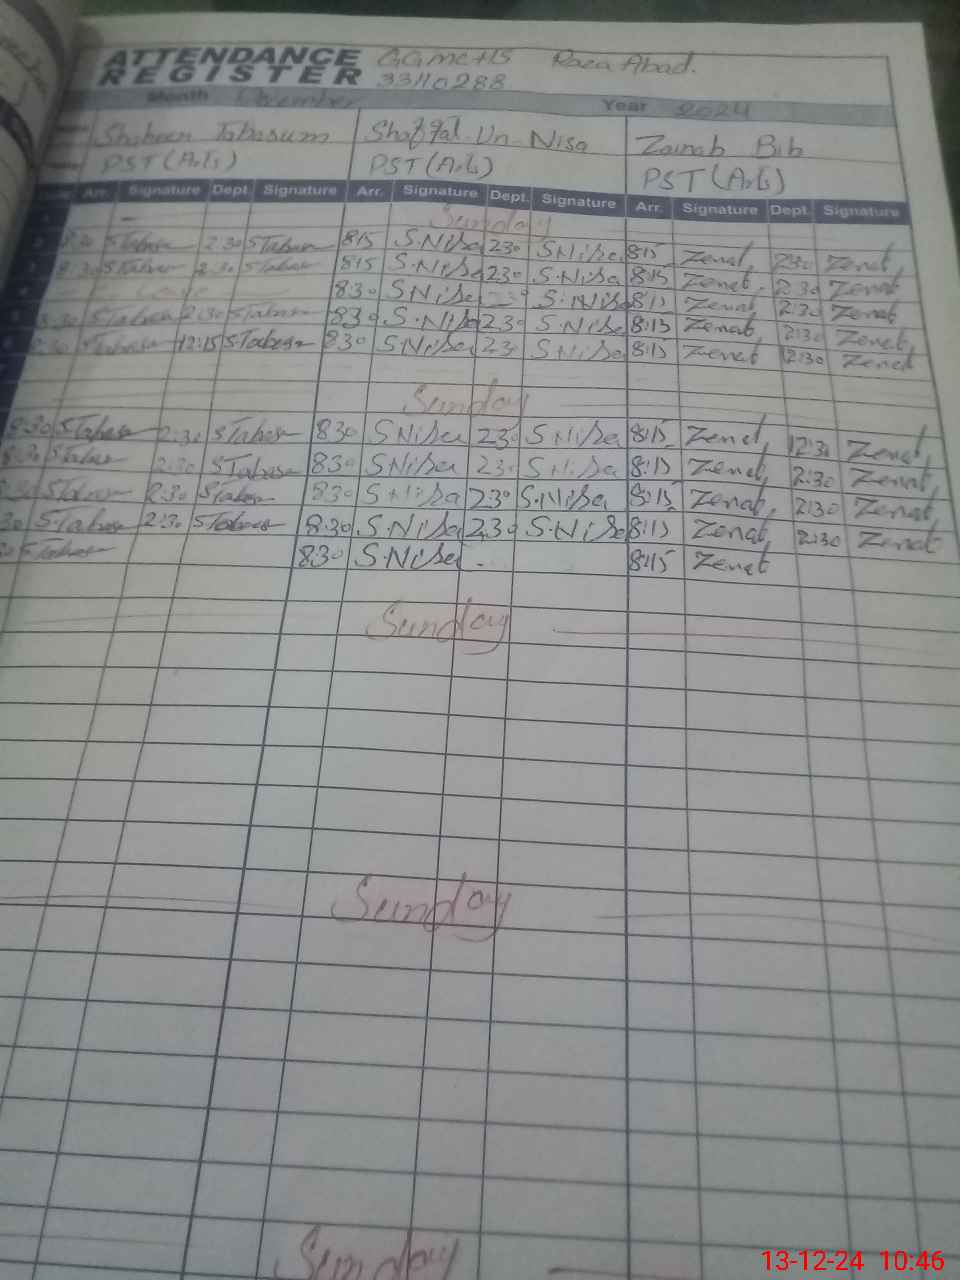 ATTENDANCE REGISTER GGMCHS Raza Abad.
33110288
Month December Year 2024
Shaheen Tabasum Shafqat-Un-Nisa Zainab Bib
PST (Arts) PST (Arts) PST (Arts)
Arr. Signature Dept. Signature Arr. Signature Dept. Signature Arr. Signature Dept. Signature
1 Sunday
2 8:30 STabas 2:30 STabas 815 S.Nisa 230 S.Nisa 8:15 Zenat, 2:30 Zenat,
3 8:30 STabas 2:30 STabas 815 S.Nisa 230 S.Nisa 8:15 Zenat, 2:30 Zenat
4 Leave 830 S.Nisa 230 S.Nisa 8:15 Zenat, 2:30 Zenat
5 8:30 STabas 2:30 STabas 830 S.Nisa 230 S.Nisa 8:15 Zenat, 2:30 Zenat,
6 8:30 STabas 12:15 STabas 830 S.Nisa 230 S.Nisa 8:15 Zenat 12:30 Zenat
Sunday
8:30 STabas 2:30 STabas 830 S.Nisa 230 S.Nisa 8:15 Zenat, 2:30 Zenat,
8:30 STabas 2:30 STabas 830 S.Nisa 230 S.Nisa 8:15 Zenat, 2:30 Zenat,
8:30 STabas 2:30 STabas 830 S.Nisa 230 S.Nisa 8:15 Zenat, 2:30 Zenat,
30 STabas 2:30 STabas 8:30 S.Nisa 230 S.Nisa 8:15 Zenat, 2:30 Zenat
STabas 830 S.Nisa 8:15 Zenat
Sunday
Sunday
Sunday
13-12-24 10:46